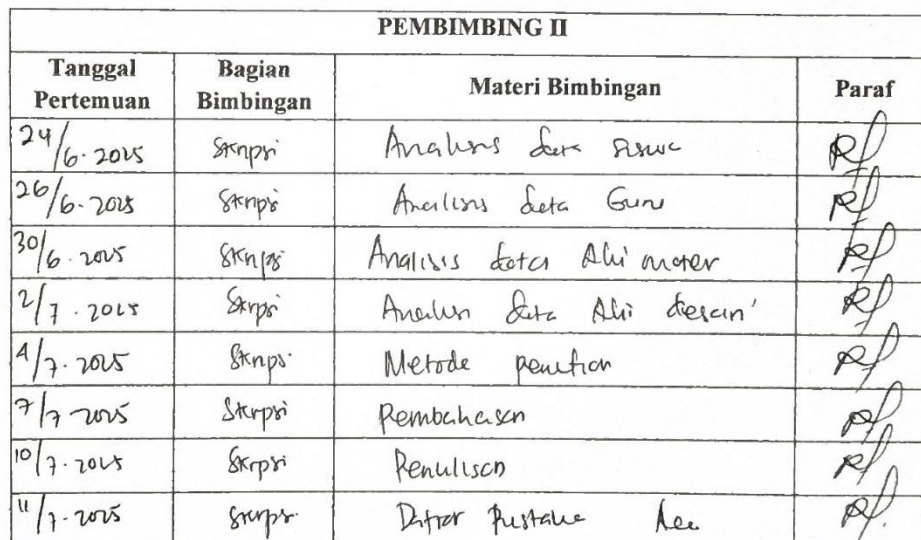 PEMBIMBING II
Tanggal Pertemuan Bagian Bimbingan Materi Bimbingan Paraf
24/6.2025 Skripsi Analisis data siswa
26/6.2025 Skripsi Analisis data Guru
30/6.2025 Skripsi Analisis data Ahli materi
2/7.2025 Skripsi Analisis data Ahli desain
4/7.2025 Skripsi Metode penelitian
7/7 2025 Skripsi Pembahasan
10/7.2025 Skripsi Penulisan
11/7.2025 Skripsi Daftar Pustaka Acc